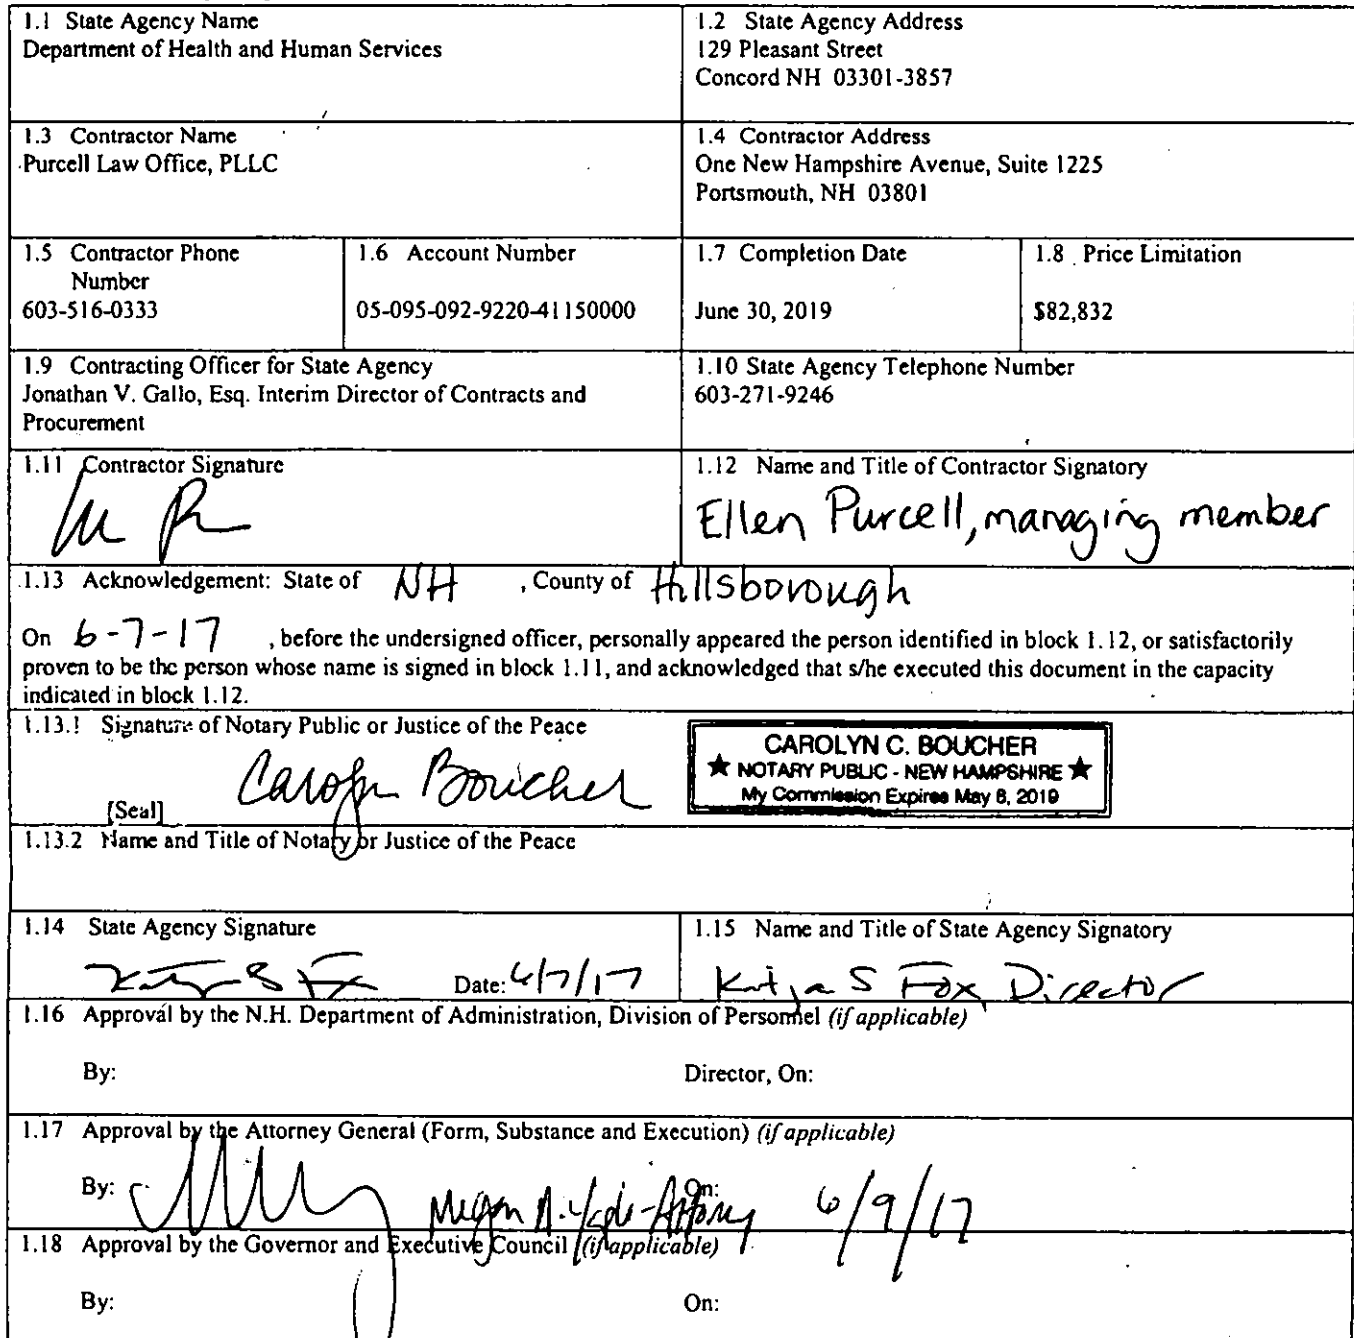 1.1 State Agency Name
Department of Health and Human Services
1.2 State Agency Address
129 Pleasant Street
Concord NH 03301-3857
1.3 Contractor Name
Purcell Law Office, PLLC
1.4 Contractor Address
One New Hampshire Avenue, Suite 1225
Portsmouth, NH 03801
1.5 Contractor Phone
Number
603-516-0333
1.6 Account Number
05-095-092-9220-41150000
1.7 Completion Date
June 30, 2019
1.8 Price Limitation
$82,832
1.9 Contracting Officer for State Agency
Jonathan V. Gallo, Esq. Interim Director of Contracts and
Procurement
1.10 State Agency Telephone Number
603-271-9246
1.11 Contractor Signature
1.12 Name and Title of Contractor Signatory
Ellen Purcell, managing member
1.13 Acknowledgement: State of NH , County of Hillsborough
On 6-7-17 , before the undersigned officer, personally appeared the person identified in block 1.12, or satisfactorily
proven to be the person whose name is signed in block 1.11, and acknowledged that s/he executed this document in the capacity
indicated in block 1.12.
1.13.1 Signature of Notary Public or Justice of the Peace
Carolyn Boucher
[Seal]
CAROLYN C. BOUCHER
★ NOTARY PUBLIC - NEW HAMPSHIRE ★
My Commission Expires May 8, 2019
1.13.2 Name and Title of Notary or Justice of the Peace
1.14 State Agency Signature
Date: 6/7/17
1.15 Name and Title of State Agency Signatory
Katja S Fox, Director
1.16 Approval by the N.H. Department of Administration, Division of Personnel (if applicable)
By: Director, On:
1.17 Approval by the Attorney General (Form, Substance and Execution) (if applicable)
By: Megan A. - Attorney On: 6/9/17
1.18 Approval by the Governor and Executive Council (if applicable)
By: On: